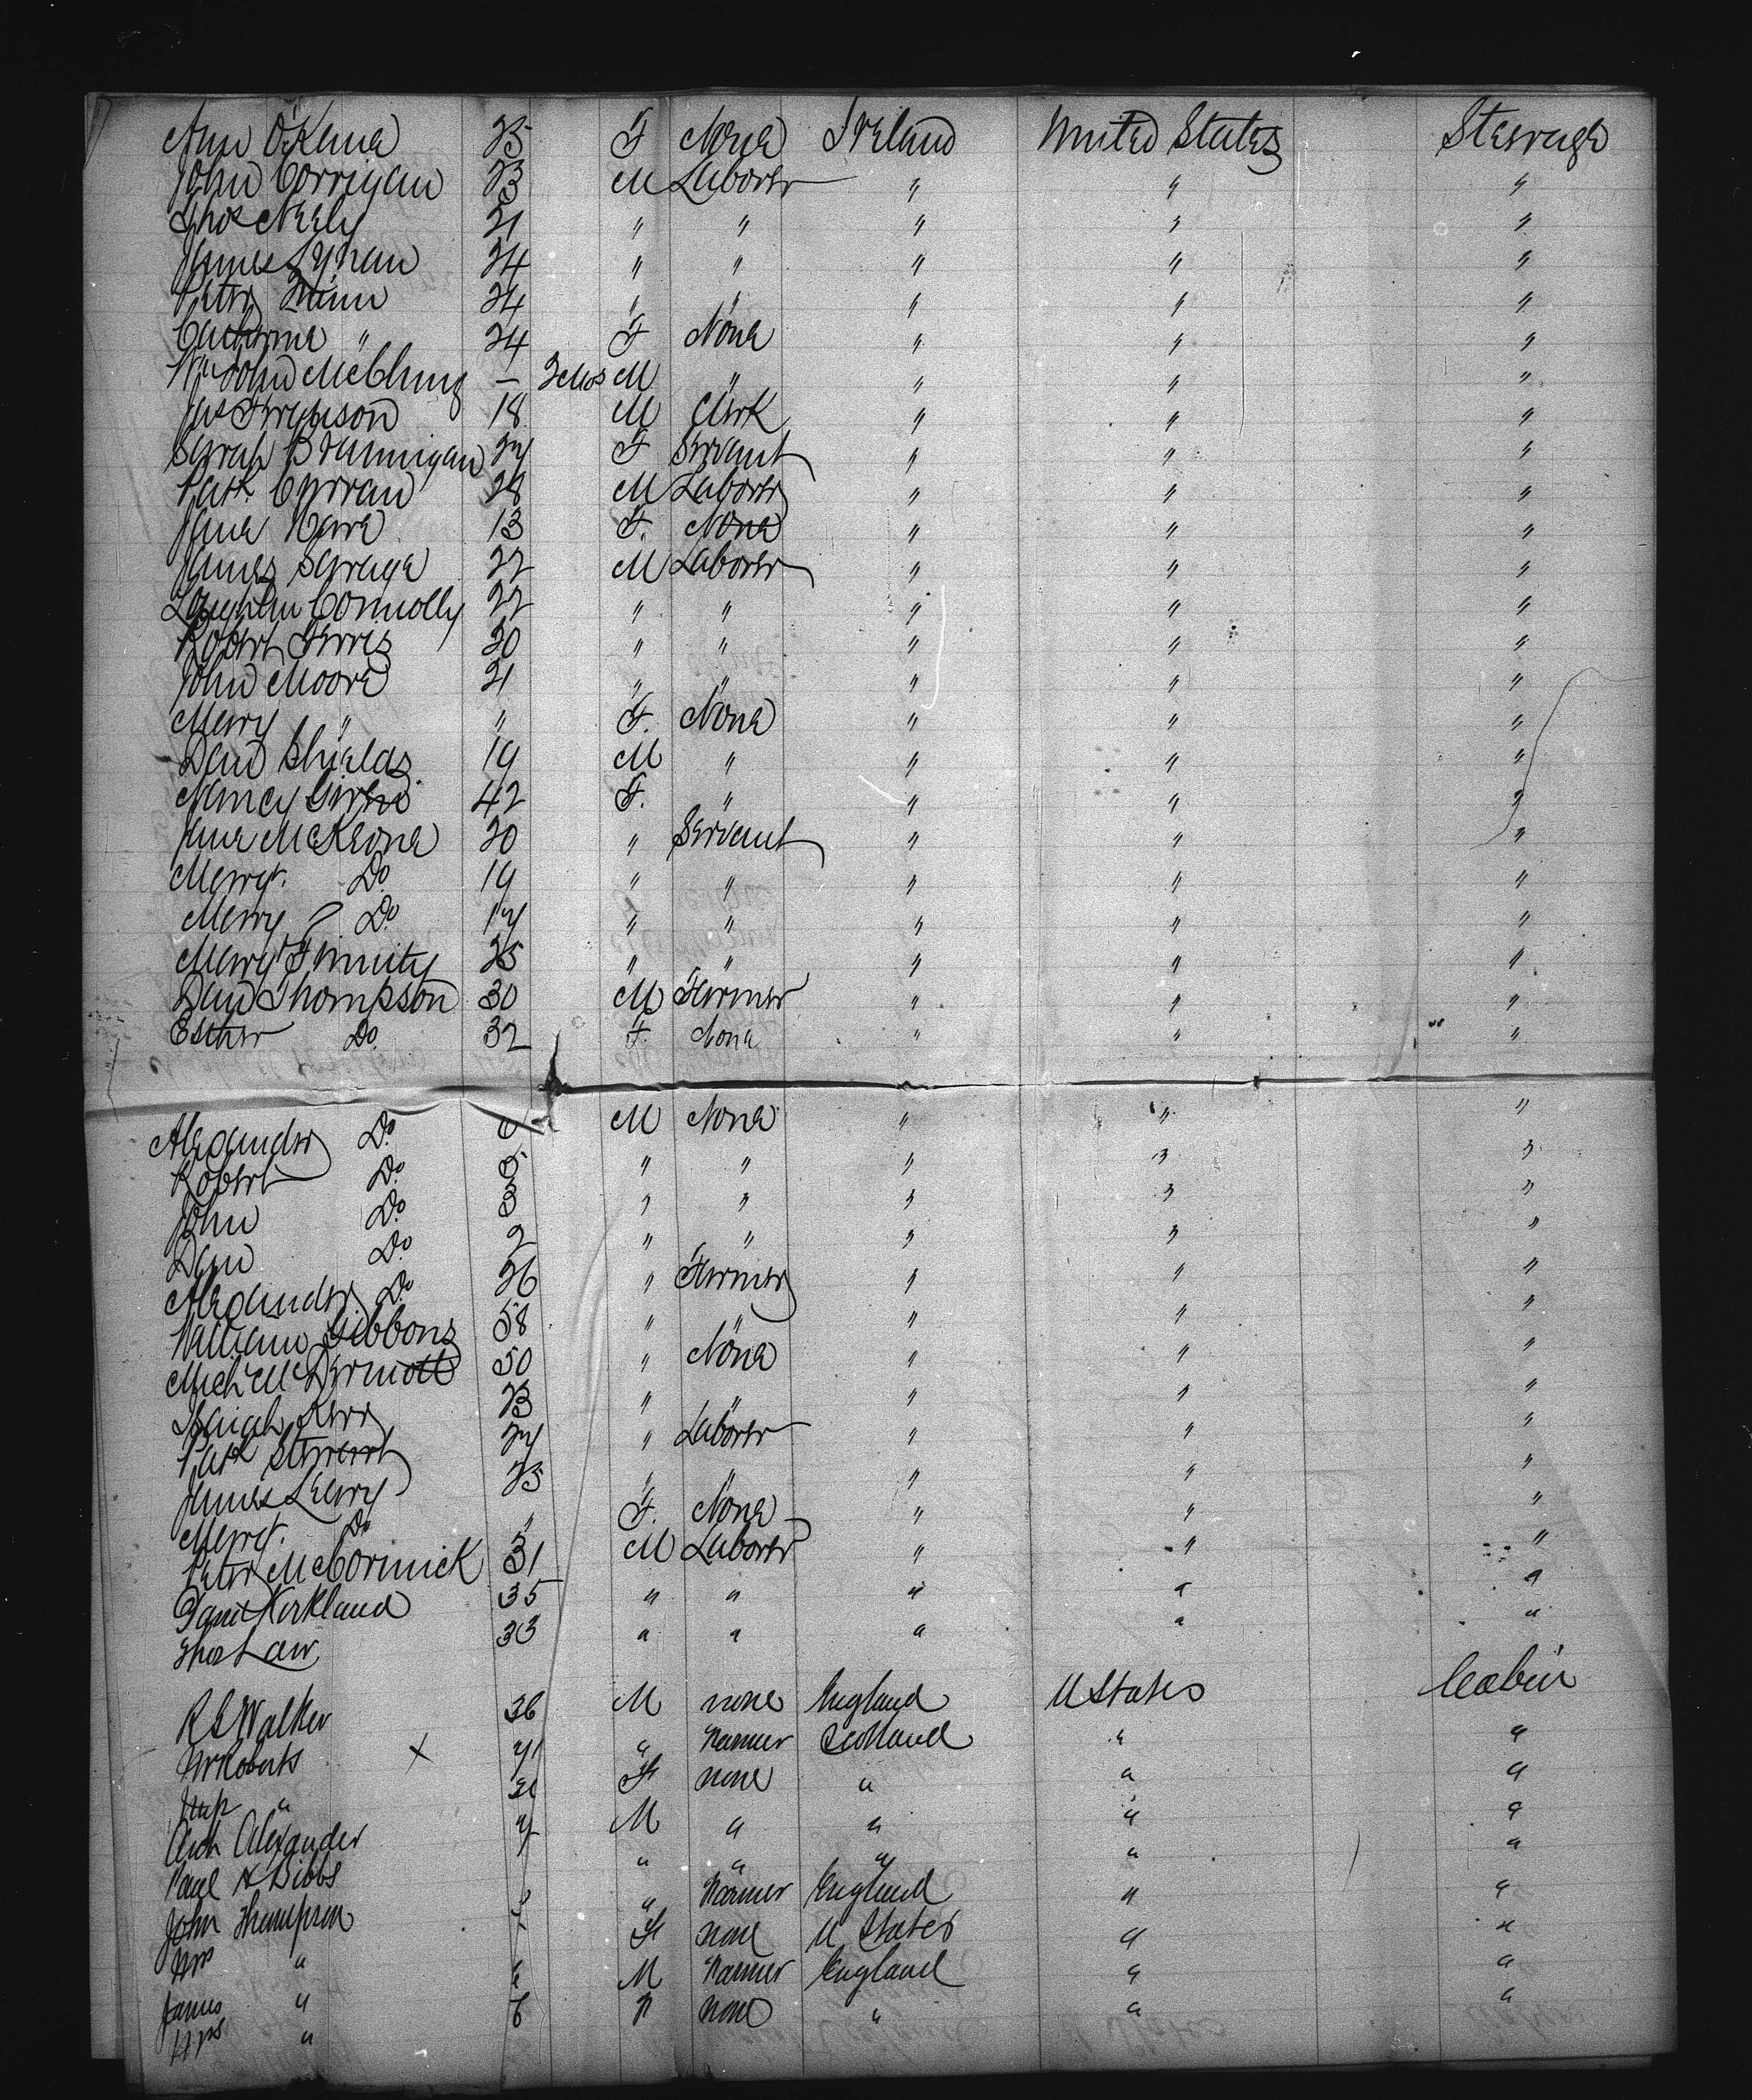 Ann O'Kane 25 F None Ireland United States Steerage
John Corrigan 23 M Laborer " " "
Thos Neely 21 " " " " "
James Lynan 24 " " " " "
Peter Quinn 24 " " " " "
Catherine " 24 F None " " "
Wm John McClung – M " " " "
Jas Ferguson 18 M Clerk " " "
Sarah Brannigan 27 F Servant " " "
Patk Curran 28 M Laborer " " "
Jane Hare 13 F. None " " "
James Savage 22 M Laborer " " "
Laughlin Connolly 22 " " " " "
Robert Ferris 20 " " " " "
John Moore 21 " " " " "
Mary " " F. None " " "
Danl Shields 19 M " " " "
Nancy 42 F. " " " "
Jane McKeone 20 " Servant " " "
Margt. Do 19 " " " " "
Mary Do 17 " " " " "
Mary Finnity 25 " " " " "
Danl Thompson 30 M Farmer " " "
Esther Do. 32 F. None " " "
Alexander Do 6 M None " " "
Robert Do 5 " " " " "
John Do 3 " " " " "
Danl Do 2 " " " " "
Alexander Do 26 " Farmer " " "
William Gibbons 58 " " " " "
Mich McDermott 50 " None " " "
Isaiah Kerr 23 " " " " "
Patk Stewart 27 " Laborer " " "
James Leary 25 " " " " "
Margt. Do " F. None " " "
Peter McCormick 31 M Laborer " " "
Kirkland 35 " " " " "
Thos Law 33 " " " " "
R S Walker 36 M none England U States Cabin
Wm Roberts × 41 " Farmer Scotland " "
" F none " " "
Arch Alexander M " " " "
Paul A Bibbs " " " " "
John Thompson " Farmer England " "
Mrs " F none U States " "
James " M Farmer England " "
" 6 " none " " "